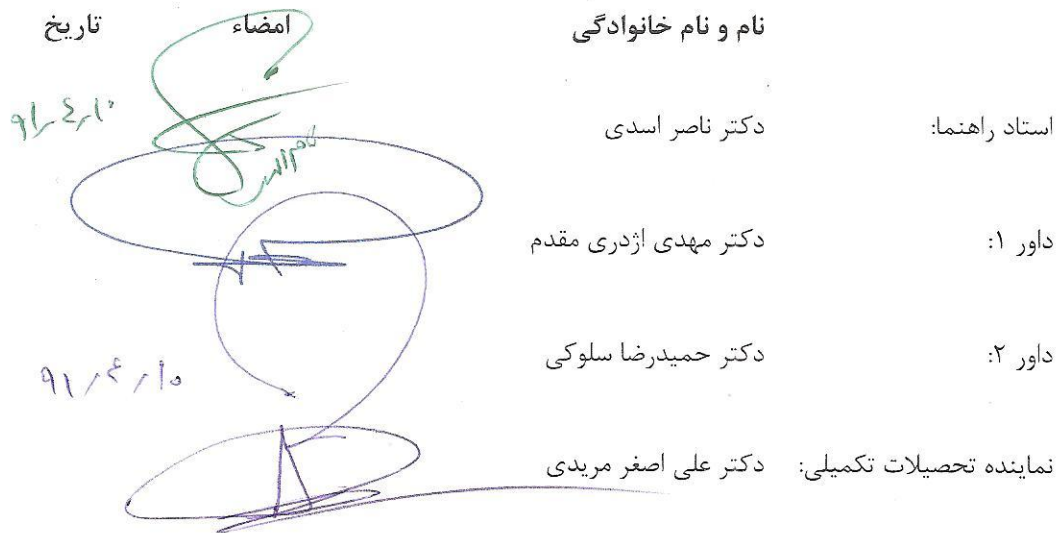 نام و نام خانوادگی امضاء تاریخ
استاد راهنما: دکتر ناصر اسدی ۹۱٫۴٫۱۰
داور ۱: دکتر مهدی اژدری مقدم
داور ۲: دکتر حمیدرضا سلوکی ۹۱٫۴٫۱۰
نماینده تحصیلات تکمیلی: دکتر علی اصغر مریدی